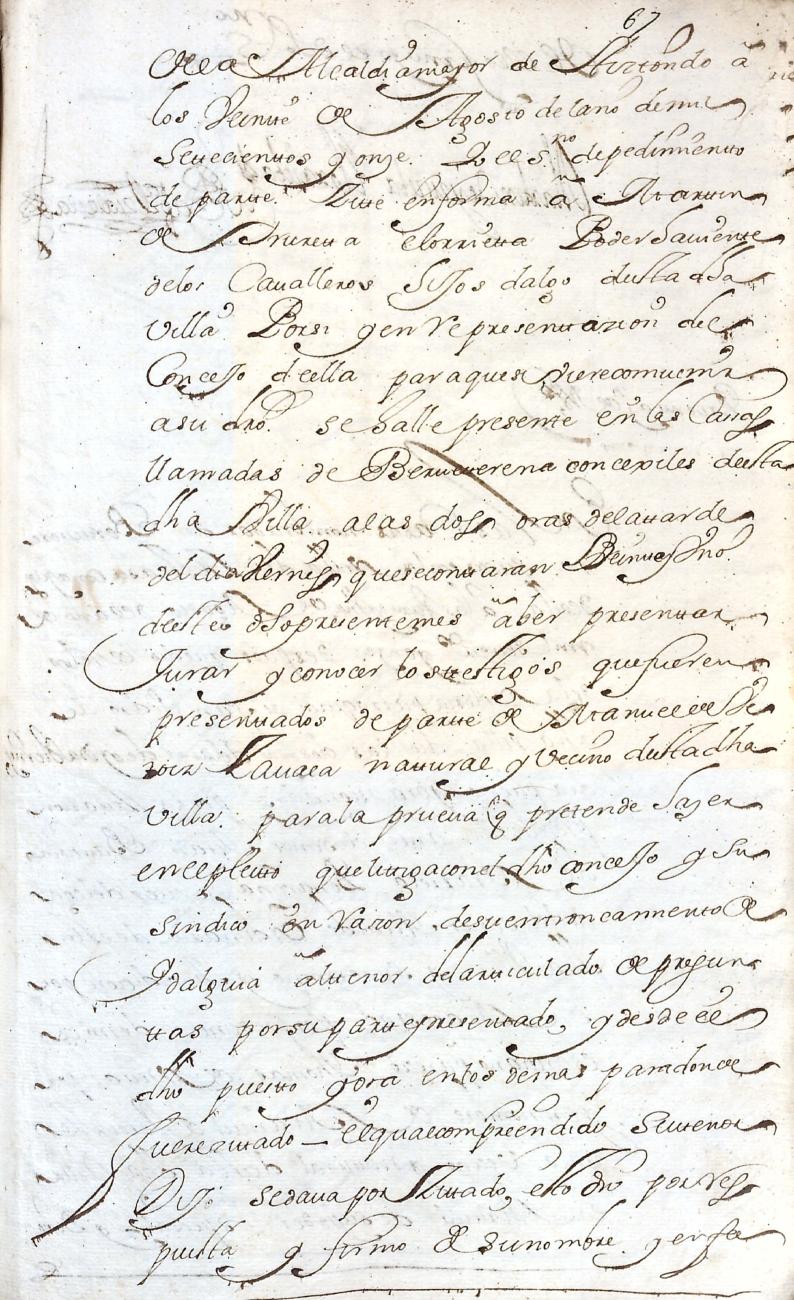 67
de la Alcaldia mayor de Aiztondo â
los Veinte de Agosto del año de mil
settecienttos y onze. Yo el s.no de pedimiento
de partte. Zité en forma â Martin
de Yrureta elorrietta Poder haviente
delos Cavalleros hijos dalgo destta dha
villa Por si y en Representtazion de
Concejo de ella para que si viere comvenir
a su dro. se halle presente en las Cassas
llamadas de concexiles destta
dha Villa a las dos oras de la tarde
del dia Viernes que se contaran Veintte y Vno
deste dho presente mes â ber presenttar
Jurar y conocer los testtigos que fueren
presenttados de partte de Manuel de
Zavala natural y Vecino destta dha
villa. para la prueva q pretende hazer
en el pleitto que litiga con el dho concejo y su
sindico en Razon desu entroncamiento de
Ydalguia âl tenor del articulado de pregun
ttas por su partte presentado, y desde el
dho puesto y ora en los demas para donde
fuere zitado — el qual compreendido su tenor
Dijo se dava por Zitado, esto dio por Res
puesta y firmo de su nombre y en fee